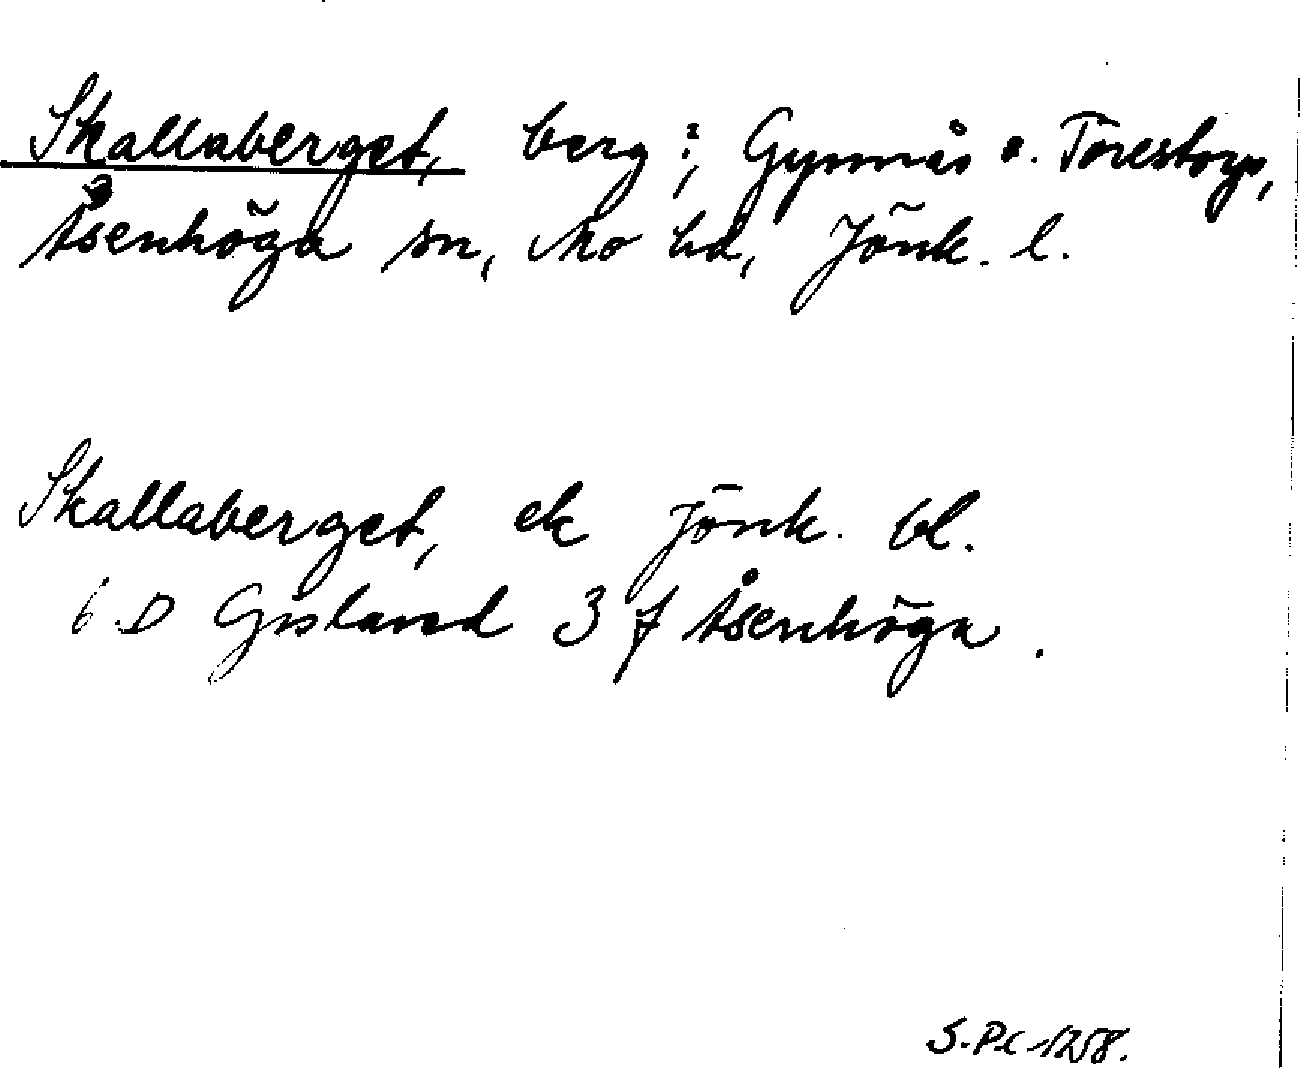 Skallaberget, berg i; Gynnås o. Torestorp,
Åsenhöga sn, Mo hd, Jönk. l.
Skallaberget, ek Jönk. bl.
6 D Gisland 3 f Åsenhöga.
S.Pl 1258.